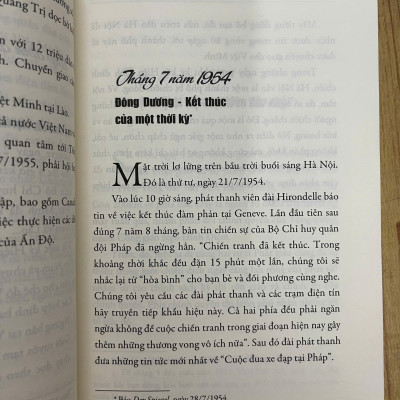 uảng Trị đọc bờ
n với 12 triệu dân
nh. Chuyển giao
iệt Minh tại Lào.
ả nước Việt Nam
quan tâm tới
7/1955, phải hội
ập, bao gồm
iệc thực hiện các
của Ấn Độ.
Tháng 7 năm 1954
Đông Dương - Kết thúc
của một thời kỳ*
Mặt trời lơ lửng trên bầu trời buổi sáng Hà Nội.
Đó là thứ tư, ngày 21/7/1954.
Vào lúc 10 giờ sáng, phát thanh viên đài Hirondelle báo
tin về việc kết thúc đàm phán tại Geneve. Lần đầu tiên sau
đúng 7 năm 8 tháng, bản tin chiến sự của Bộ Chỉ huy quân
đội Pháp đã ngừng hẳn. “Chiến tranh đã kết thúc. Trong
khoảng thời khắc đều đặn 15 phút một lần, chúng tôi sẽ
nhắc lại từ “hòa bình” cho bạn bè và đối phương cùng nghe.
Chúng tôi yêu cầu các đài phát thanh và các trạm điện tín
hãy truyền tiếp khẩu hiệu này. Cả hai phía đều phải ngăn
ngừa không để cuộc chiến tranh trong giai đoạn hiện nay gây
thêm những thương vong vô ích nữa”. Sau đó đài phát thanh
đưa những tin tức mới nhất về “Cuộc đua xe đạp tại Pháp”.
* Báo Der Spiegel, ngày 28/7/1954